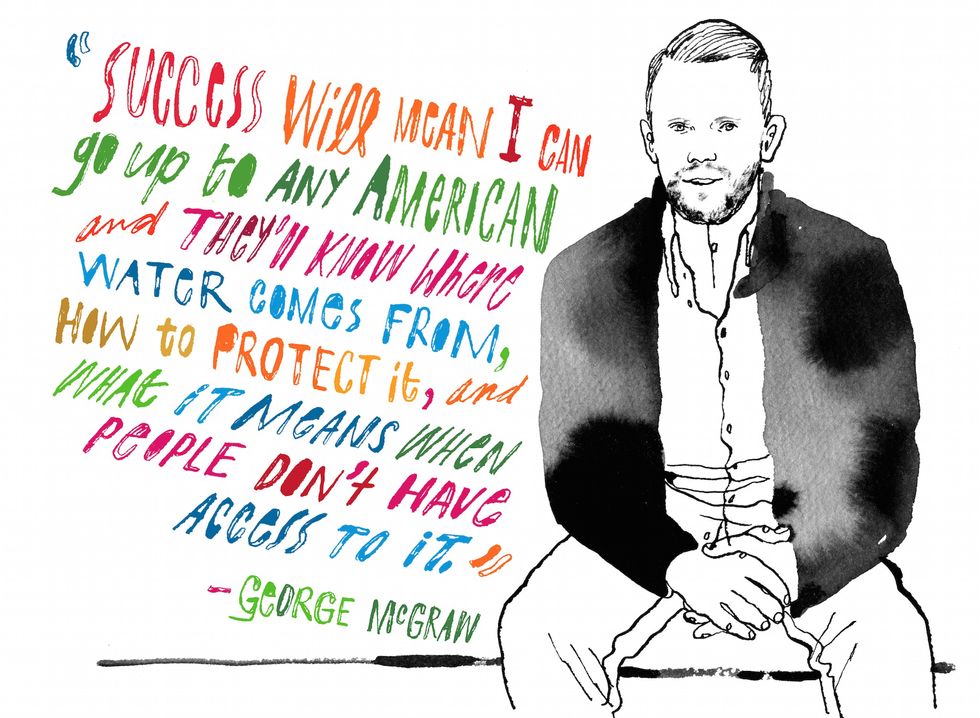 “ SUCCESS Will MEAN I CAN
go up to ANY AMERICAN
and THEY'll KNOW Where
WATER COMES FROM,
HOW to PROTECT it, and
WHAT IT MEANS WHEN
PEOPLE DON'T HAVE
ACCESS TO iT.”
– GEORGE McGRAW